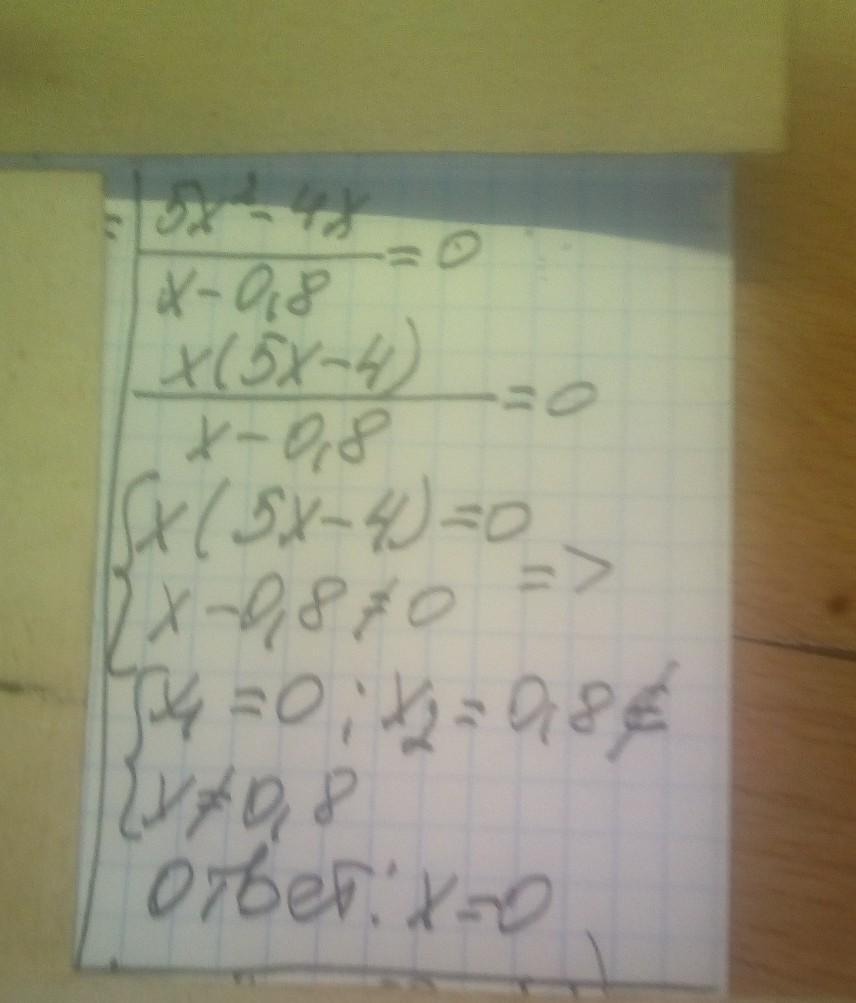 5x² - 4x
x - 0,8 = 0
x(5x - 4)
x - 0,8 = 0
x(5x - 4) = 0
x - 0,8 ≠ 0 =>
x₁ = 0; x₂ = 0,8 ∉
x ≠ 0,8
ответ: x = 0